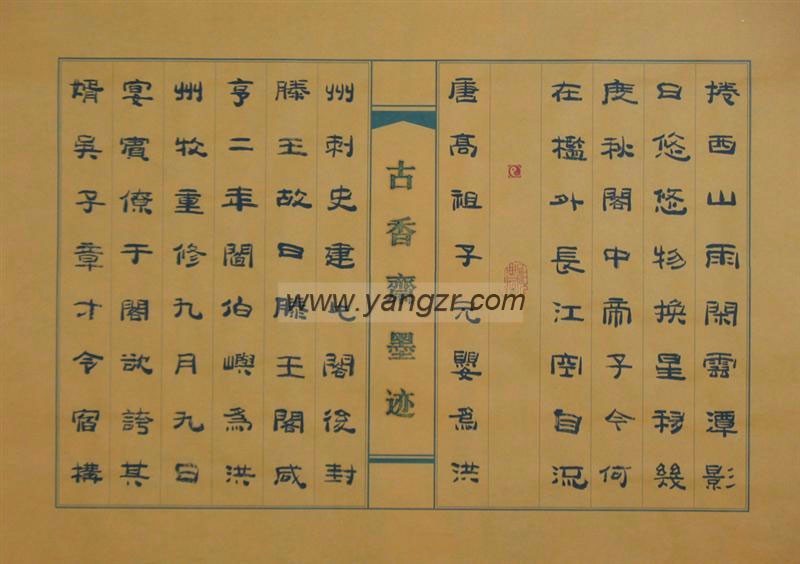 捲西山雨閑雲潭影
日悠悠物換星移幾
度秋閣中帝子今何
在檻外長江空自流
唐高祖子元嬰為洪
古香齋墨迹
州刺史建此閣後封
滕王故曰滕王閣咸
亨二年閻伯嶼為洪
州牧重修九月九日
宴賓僚于閣欲誇其
婿吳子章才令宿構
www.yangzr.com